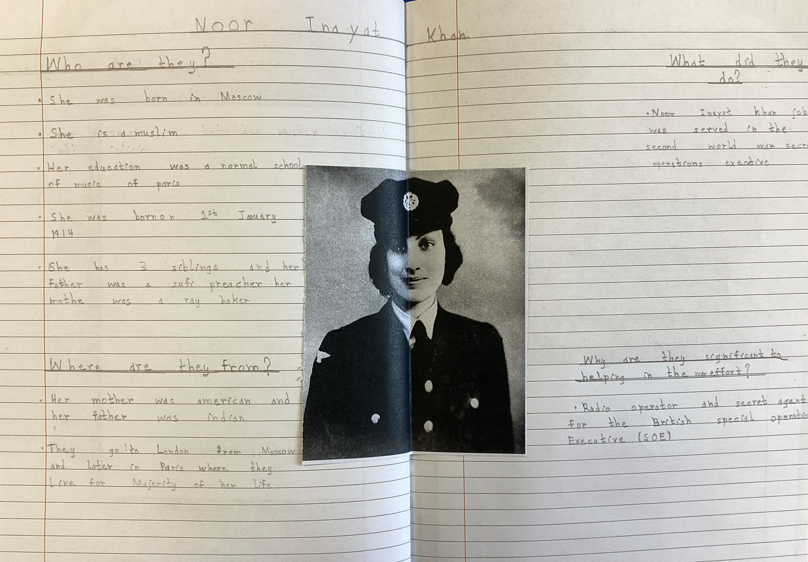 Noor Inayat Khan
Who are they?
• She was born in Moscow
• She is a muslim
• Her education was a normal school
of music of paris
• She was born on 1st January
1914
• She has 3 siblings and her
father was a sufi preacher her
mothe was a ray baker
Where are they from?
• Her mother was american and
her father was indian
• They go to London from Moscow
and later in Paris where they
Live for Majority of her life
What did they
do?
• Noor Inayat khan job
was served in the
second world war secr
operations executive
Why are they significant to
helping in the war effort?
• Radio operator and secret agent
for the British special operatio
Executive (SOE)